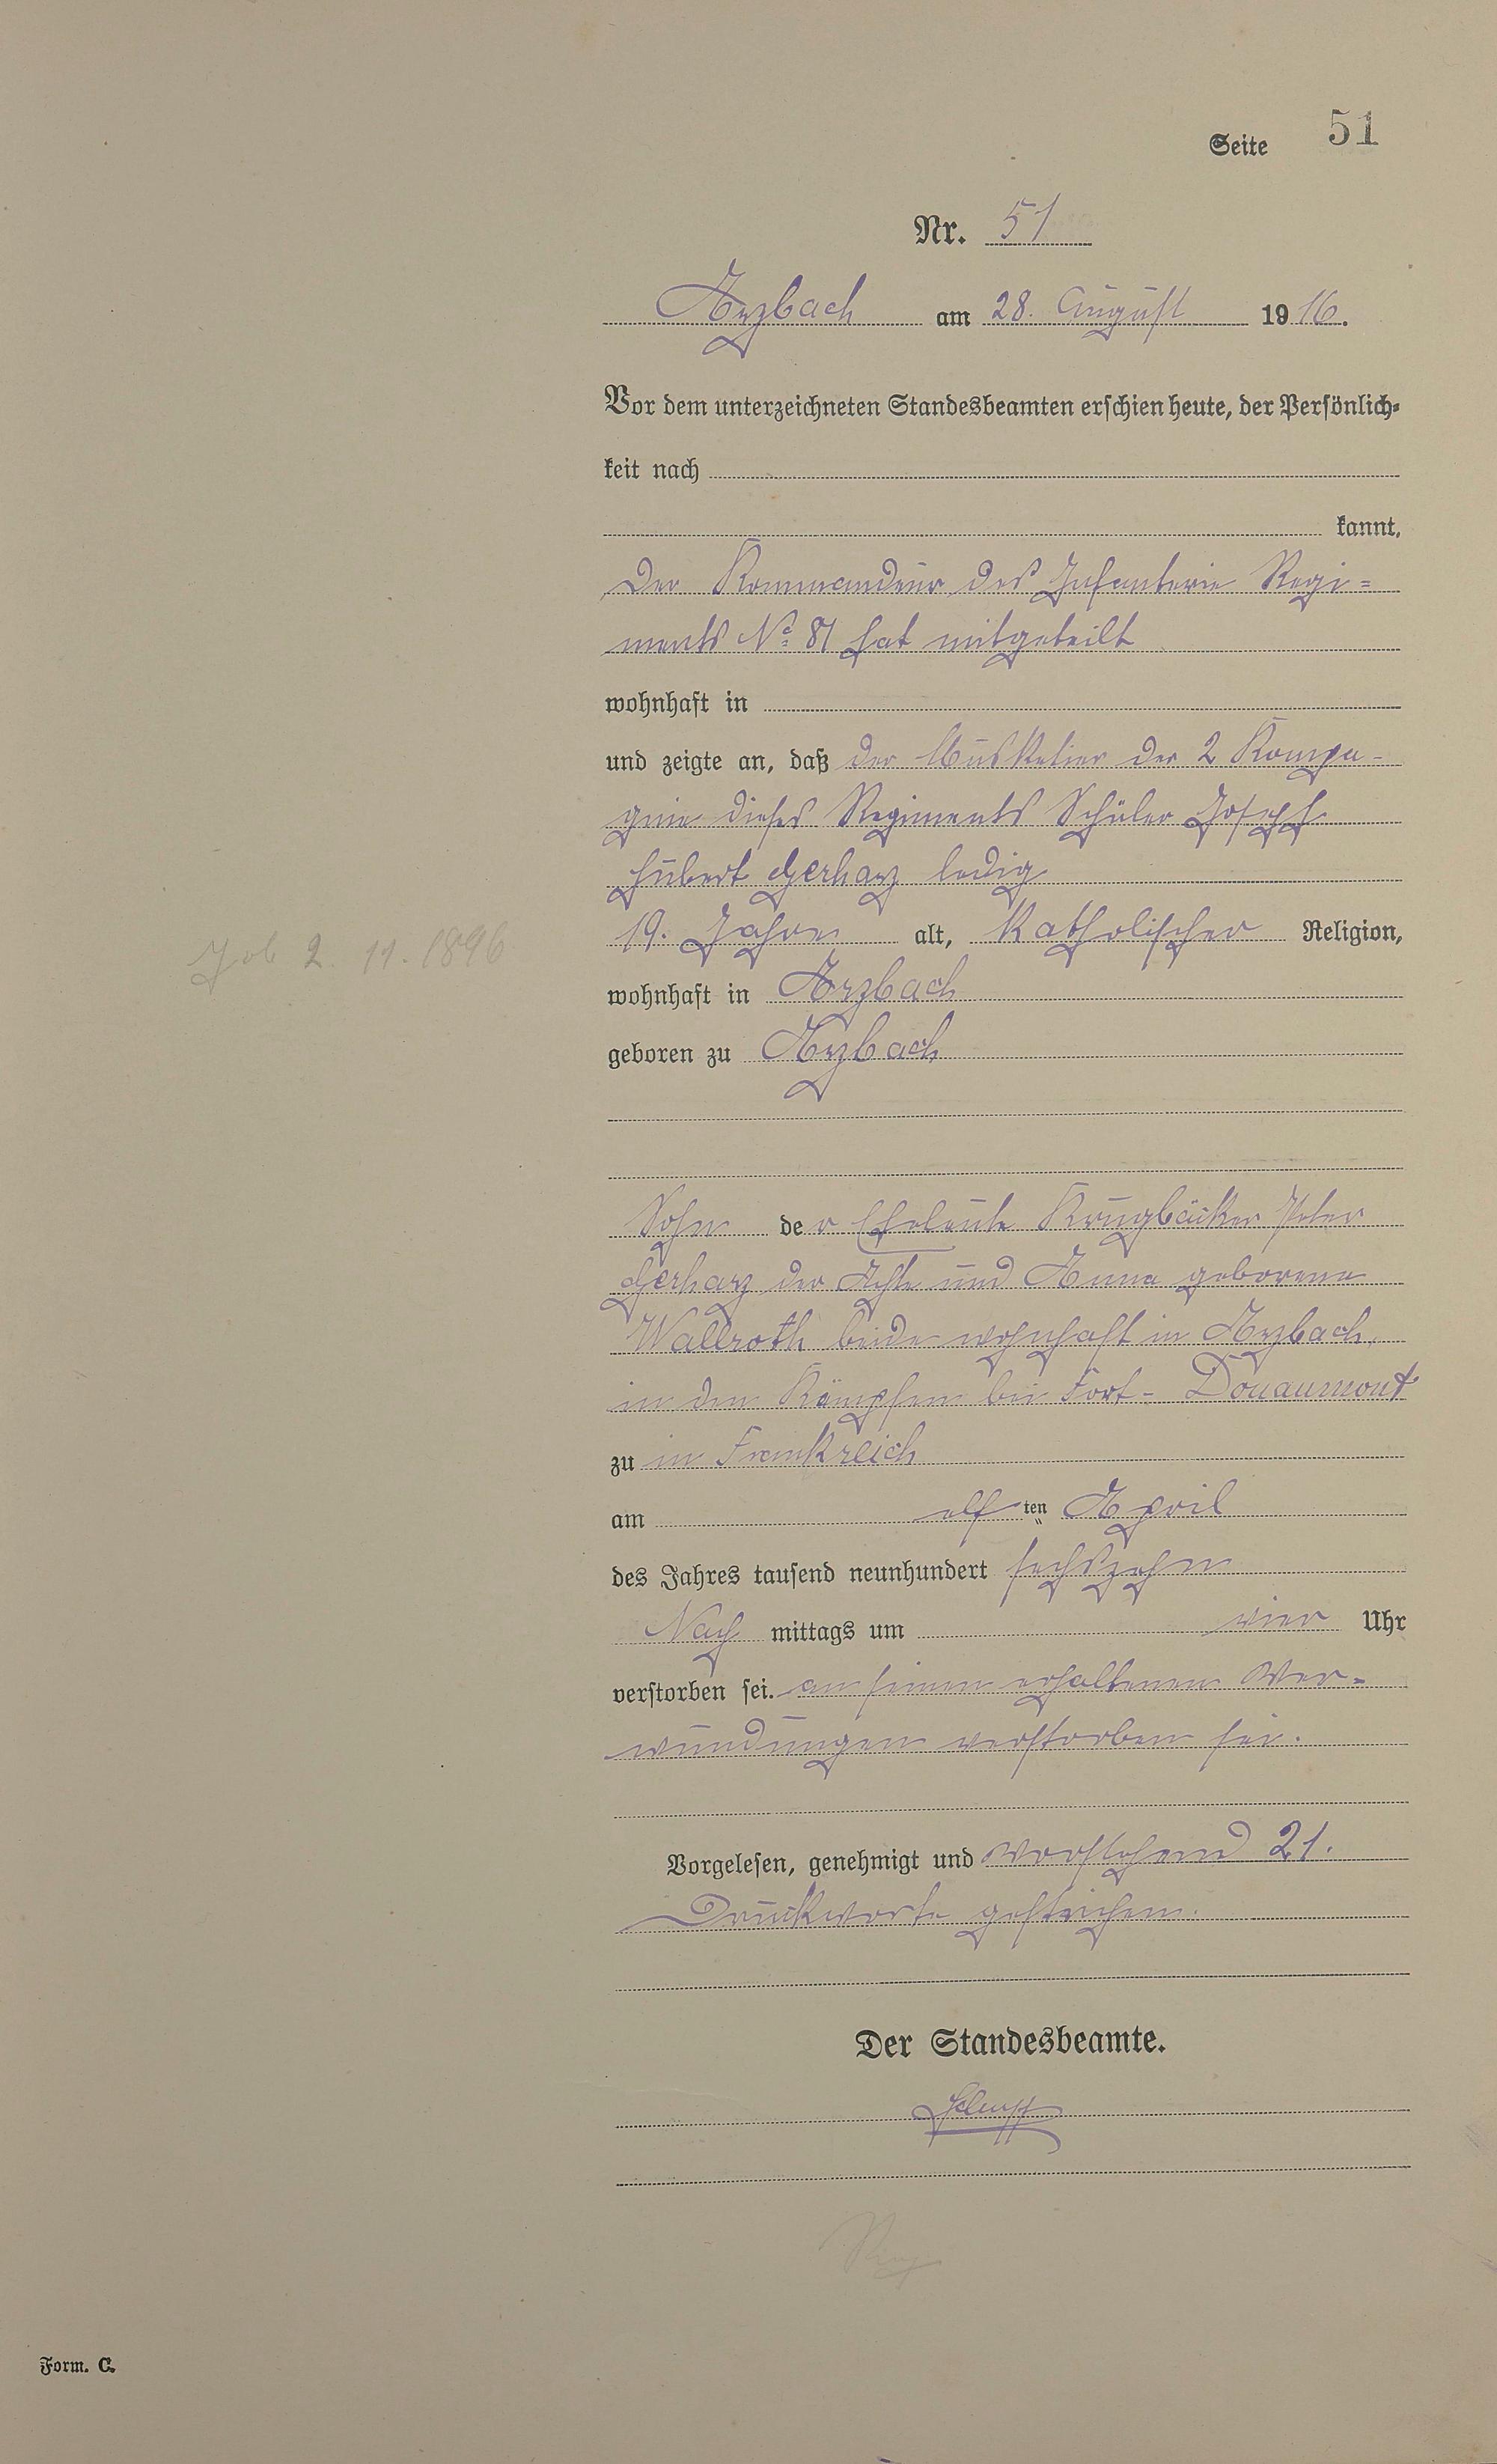 Seite 51
Nr. 51
Arzbach am 28. August 1916.
Vor dem unterzeichneten Standesbeamten erschien heute, der Persönlich-
keit nach
kannt,
Der Kommandeur des Infanterie Regi-
ments No 81 hat mitgeteilt
wohnhaft in
und zeigte an, daß der Musketier der 2 Kompa-
gnie dieses Regiments Schüler Joseph
Hubert Gerharz ledig
19. Jahre alt, katholischer Religion,
geb 2. 11. 1896
wohnhaft in Arzbach
geboren zu Arzbach
Sohn der Eheleute Krugbäcker Peter
Gerharz der Achte und Anna geborene
Wallroth beide wohnhaft in Arzbach,
in den Kämpfen bei Fort- Douaumont
zu in Frankreich
am elften April
des Jahres tausend neunhundert sechszehn
Nach mittags um vier Uhr
verstorben sei. an seinen erhaltenen Ver-
wundungen verstorben sei.
Vorgelesen, genehmigt und Vorstehend 21.
Druckworte gestrichen.
Der Standesbeamte.
Form. C.